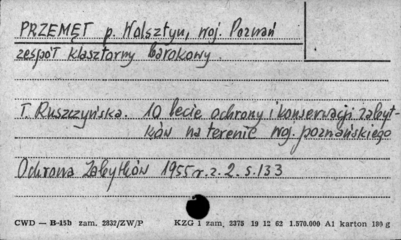 PRZEMĘT p. Wolsztyn, woj. Poznań
zespół klasztorny barokowy.
T. Ruszczyńska. 10 lecie ochrony i konserwacji zabyt-
ków na terenie woj. poznańskiego
Ochrona Zabytków 1955 r. z. 2. s. 133
CWD — B-15b zam. 2832/ZW/P KZG 1 zam. 2375 19 12 62 1.570.000 A1 karton 190 g